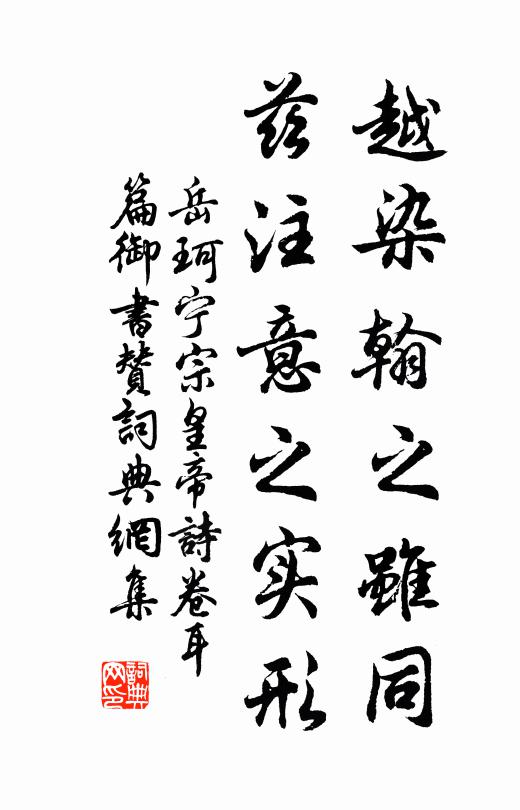 越染翰之雖同
兹注意之实形
岳珂宁宗皇帝詩卷耳
篇御書賛詞典網集
詞典网印